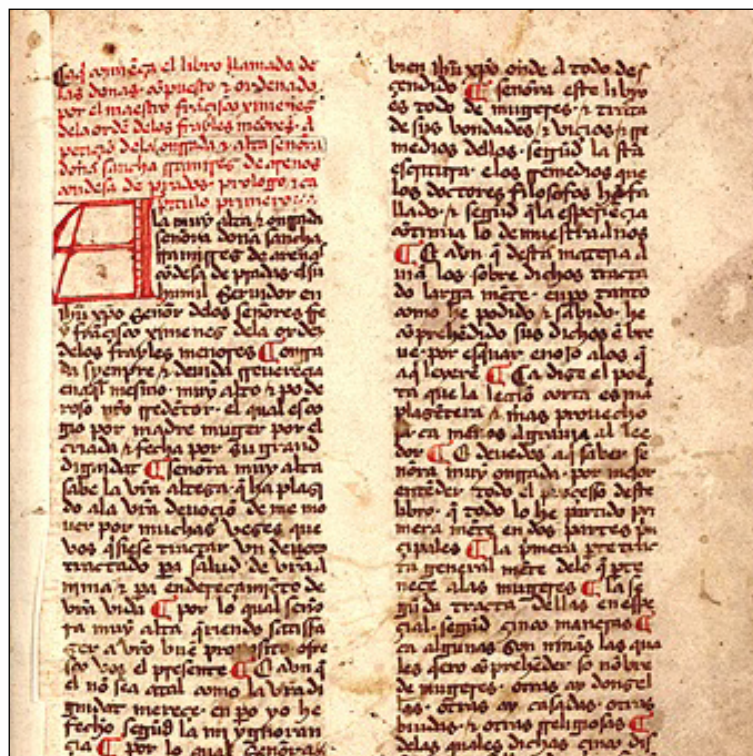 Aq̃ comiẽça el libro llamado de
las donas. cõpuesto ⁊ ordenado
por el maestro frãcisco ximenes
dela ordẽ delos frayles meores. a
peticiõ dela onrrada ⁊ alta señora
doña sancha rramires de arenos
condesa de prades. prologo ⁊ ca
pitulo primero
A la muy alta ⁊ onrrada
señora doña sancha
rramires de arenos
cõdesa de pradas. el su
humil seruidor en
ihũ xpõ señor delos señores fre
y frãcisco ximenes dela orden
delos frayles menores ¶ onrra
da syenpre ⁊ deuida rreuerençia
enaq̃l mesmo. muy alto ⁊ po de
roso nr̃o rredẽtor. el qual esco
gio por madre muger por el
criada ⁊ fecha por su grand
dignidat ¶ señora muy alta
sabe la vr̃a alteza. q̃ ha plasi
do ala vr̃a deuoçiõ de me mo
uer por muchas veses que
vos q̃siese tractar vn deuoto
tractado pa salud de vr̃a a
nima ⁊ pa endereçamiẽto de
vr̃a vida ¶ por lo qual seño
ra muy alta q̃riendo satisfa
zer a vr̃o buẽ proposito ofre
sco vos el presente ¶ E avn q̃
el nõ sea atal como la vr̃a di
gnidat merece. en po yo he
fecho segũd la mi ygnoran
çia ¶ por lo qual señora
bien ihũ xpõ onde a todo des
çendido ¶ señora este libro
es todo de mugeres. ⁊ tracta
de sus bondades. ⁊ viçios. ⁊ rre
medios dellos. segũd la sc̃ta
escritura. e los rremedios que
los doctores filosofos hã fa
llado. ⁊ segũd q̃ la esperiẽçia
cõtinua lo demuestra anos
¶ E avn q̃ desta materia a
yna los sobre dichos tracta
do larga mẽte. enpo tanto
como he podido ⁊ sabido. he
cõprehẽdido sus dichos ẽ bre
ue. por esq̃uar enojo alos q̃
aq̃ leyere ¶ Ca dise el poe
ta que la leçiõ corta es mas
plazẽtera ⁊ mas prouecho
sa ca menos agrauia al lee
dor ¶ E deuedes aq̃ saber se
ñora muy onrrada. por mejor
entẽder todo el proçesso deste
libro. q̃ todo lo he partido pri
mera mẽte en dos partes prĩ
çipales ¶ la pĩmera pte trac
ta general mẽte delo q̃ pte
neçe alas mugeres ¶ la se
gũda tracta dellas en espe
çial. segũd çinco maneras ¶
ca algunas son niñas las qua
les q̃ero cõprehẽder so nõbre
de mugeres. otras ay donzel
las. otras ay casadas. otras
biudas. ⁊ otras rreligiosas ¶
delas quales dichas çinco dif